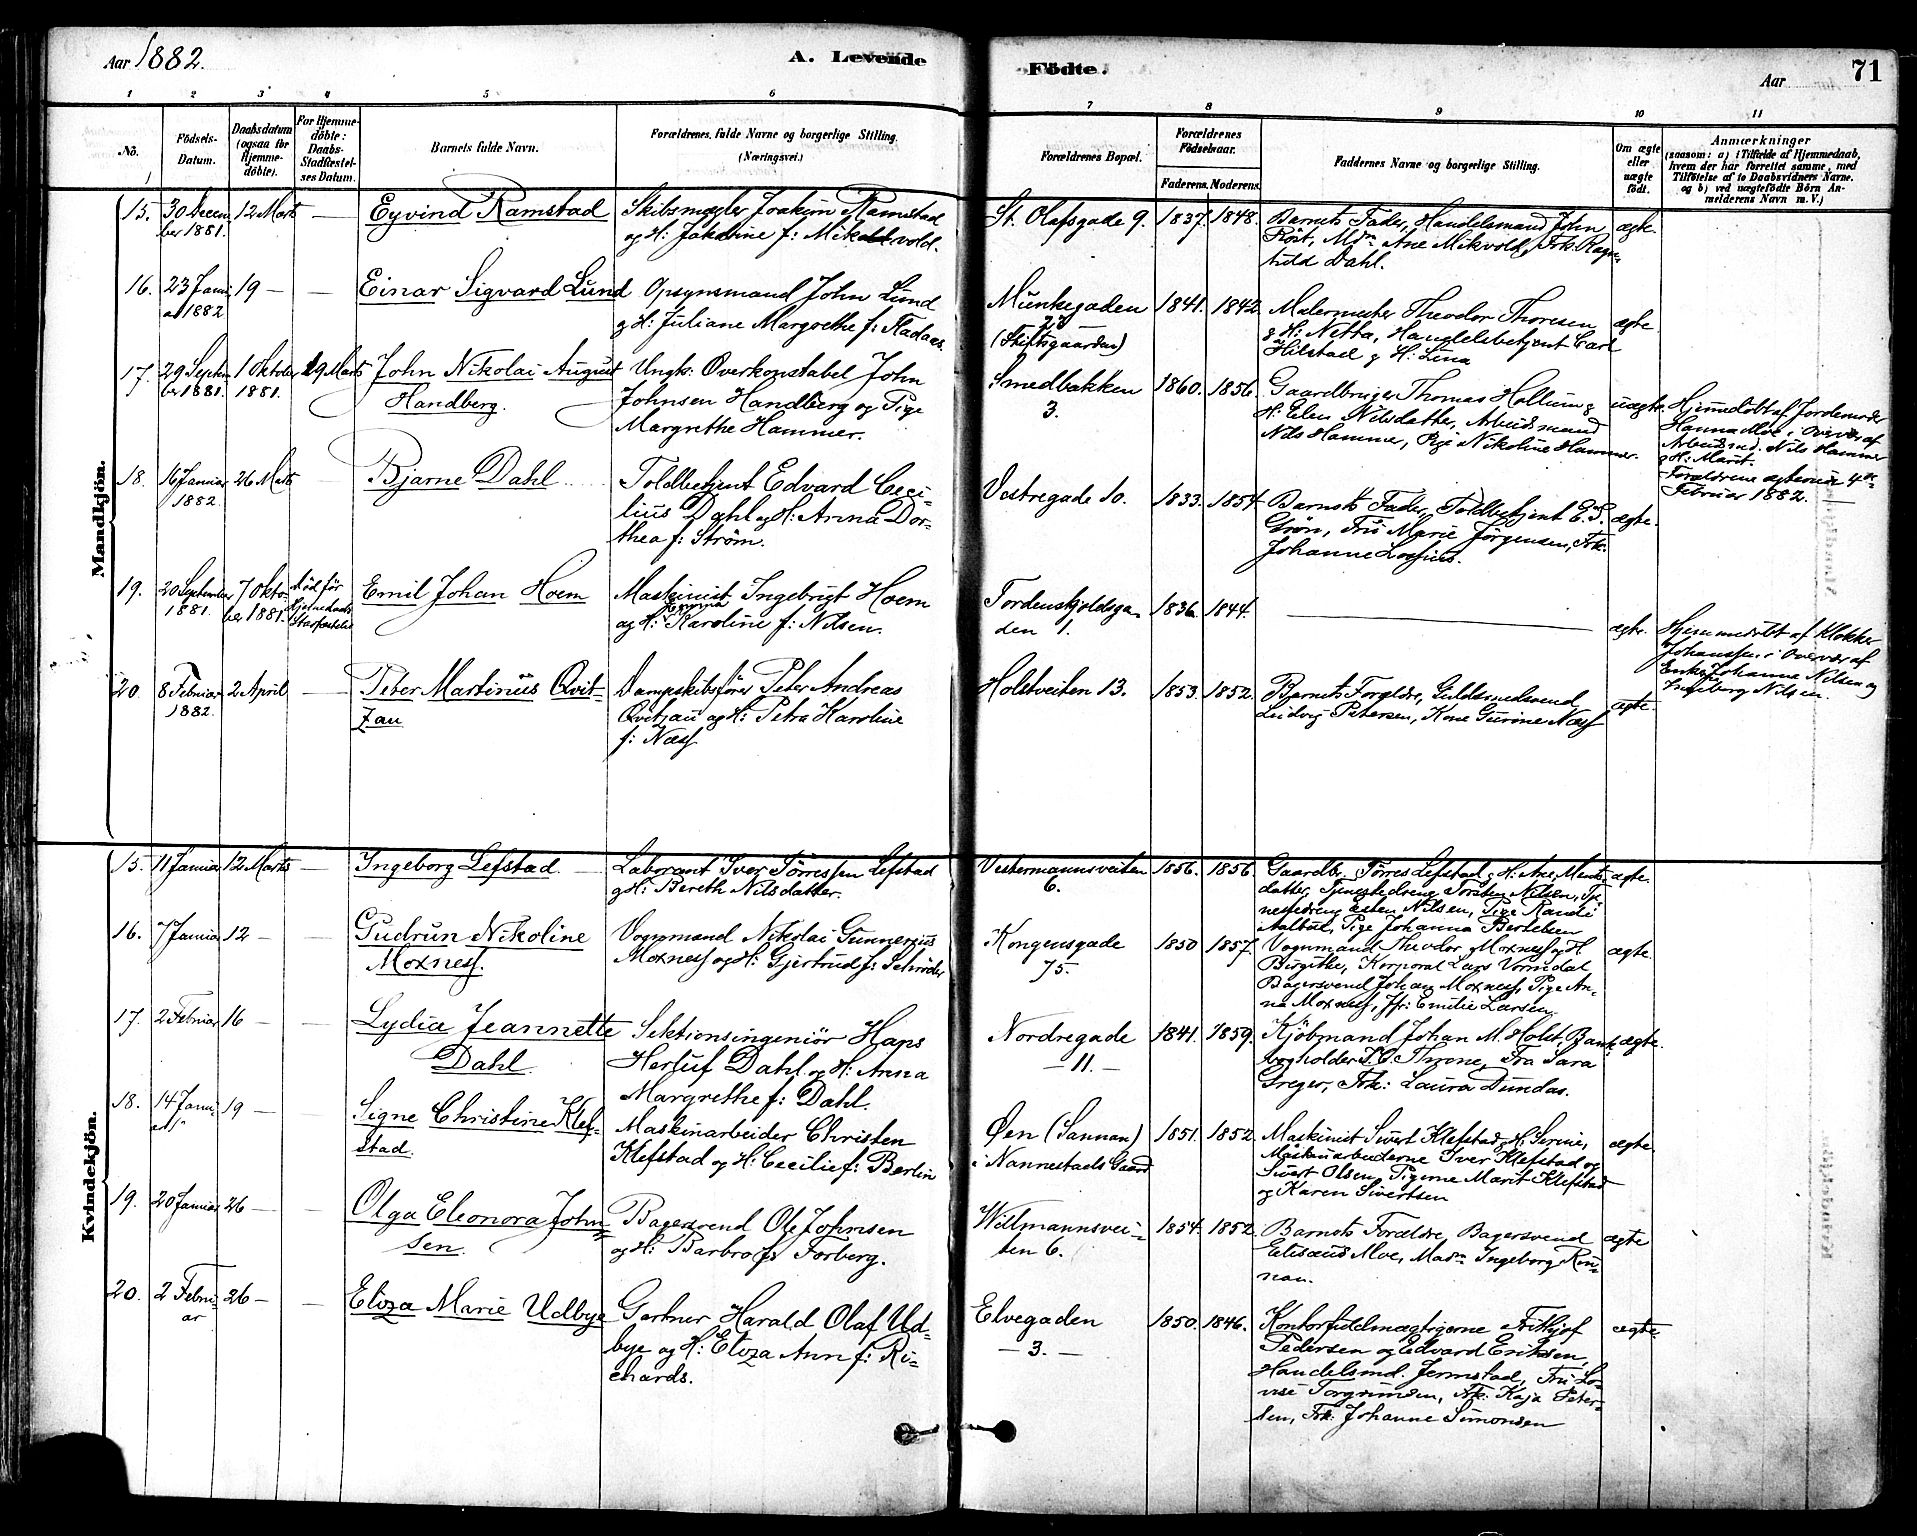 Aar 1882.
A. Levende
Födte.
Aar
71
1 2 3 4 5 6 7 8 9 10 11
No.
Födsels-Datum.
Daabsdatum (ogsaa for Hjemme-döbte).
For Hjemme-döbte: Daabs-Stadfæstel-ses Datum.
Barnets fulde Navn.
Forældrenes fulde Navne og borgerlige Stilling.
(Næringsvei.)
Forældrenes Bopæl.
Forældrenes Födselsaar.
Faderens. Moderens.
Faddernes Navne og borgerlige Stilling.
Om ægte eller uægte födt.
Anmærkninger
(saasom: a) i Tilfælde af Hjemmedaab, hvem der har forrettet samme, med Tilföielse af to Daabsvidners Navne. og b) ved uægtefödte Börn Anmelderens Navn m. V.)
Mandkjön.
15. 30 Decem
ber 1881. 12 Marts — Eyvind Ramstad
Skibsmægler Joakim Ramstad
og H: Jakobine f: Mikvold.
St. Olafsgade 9. 1837. 1848.
Barnets Fader, Handelsmand John
Röst, Md<sup>m</sup> Ane Mikvold, Frk. Ragn-
hild Dahl.
ægte.
16. 23 Janu
ar 1882 19 — — Einar Sigvard Lund
Opsynsmand John Lund
og H: Juliane Margrethe f:
Munkegaden
(Stiftsgaarden) 1841. 1842.
Malermester Theodor Thoresen
og H: Netta, Handelsbetjent Carl
Hilstad og H: Lina
ægte.
17. 29 Septem
ber 1881. 1 Oktober
1881. 19 Marts John Nikolai August
Handberg.
Ungk: Overkonstabel John
Johnsen Handberg og Pige
Margrethe Hammer.
Smedbakken
3. 1860. 1856.
Gaardbruger Thomas Hollum og
H: Elen Nilsdatter, Arbeidsmand
Nils Hammer, Pige Nikoline Hammer.
uægte.
Hjemmedöbt af Jordemoder
Hanna Moe i Overvær af
Arbeidsmd. Nils Hammer
og H: Marit.
Forældrene ægteviet 4de
Februar 1882.
18. 16 Januar
1882 26 Marts — Bjarne Dahl
Toldbetjent Edvard Ceci-
lius Dahl og H: Anna Dor-
thea f: Ström.
Vestregade 10. 1833. 1854.
Barnets Fader, Toldbetjent E. S.
Grön, Fru Marie Jörgensen, Frk.
Johanne Lossius.
ægte.
19. 20 September
1881. 7 Okto-
ber 1881. död för
Hjemmedaabs
Stadfæstelse Emil Johan Hoem
Maskinist Ingebrigt Hoem
og H: Karoline f: Nilsen.
Tordenskjoldsga-
den 1. 1836. 1844. —
ægte.
Hjemmedöbt af Klokker
Johanssen i Overvær af
Enke Johanne Nilsen og
Ingeborg Nilsen.
20. 8 Februar
1882. 2 April — Peter Martinus Qvit-
zau
Dampskibsförer Peter Andreas
Qvitzau og H: Petra Karoline
f: Næss
Holstveiten 13. 1853. 1852.
Barnets Forældre, Guldsmedsvend
Ludvig Petersen, Kone Gurine Næss
ægte.
Kvindekjön.
15. 11 Januar 12 Marts — Ingeborg Lefstad —
Laborant Iver Törressen Lefstad
og H: Bereth Nilsdatter.
Vestermannsveiten
6. 1856. 1856.
Gaardbr. Törres Lefstad og H: Ane Ments-
datter, Tjenestedreng Torsten Nilsen, Tje-
nestedreng Esten Nilsen, Pige Randi
Aalbu, Pige Johanna Berdelsen
ægte.
16. 7 Januar 12 — — Gudrun Nikoline
Moxness.
Vognmand Nikolai Gunnerius
Moxness og H: Gjertrud f: Schröder
Kongensgade
75. 1850 1857.
Vognmand Theodor Moxness og H.
Birgitte, Korporal Lars Vorndal,
Bagersvend Johan Moxness, Pige An-
na Moxness, Jfr: Emilie Larsen
ægte.
17. 2 Februar 16 — — Lydia Jeannette
Dahl.
Sektionsingeniör Hans
Herluf Dahl og H: Anna
Margrethe f: Dahl.
Nordregade
—11.— 1841. 1859.
Kjöbmand Johan M. Holst, Bank-
bogholder T. O. Throne, Fru Sara
Greger, Frk: Laura Dundas.
ægte.
18. 14 Janu-
ar 19 — — Signe Christine Klef-
stad.
Maskinarbeider Christen
Klefstad og H: Cecilie f: Berlin
Øen (Sannan)
i Nannestads Gaard 1851. 1852.
Maskinist Sivert Klefstad og H: Serine,
Maskinarbeiderne Iver Klefstad og
Sivert Olsen, Pigerne Marit Klefstad
og Karen Sivertsen
ægte
19. 20 Januar 26 — — Olga Eleonora John-
sen.
Bagersvend Ole Johnsen
og H: Barbro f: Forberg.
Willmannsvei-
ten 6. 1854. 1852.
Barnets Forældre, Bagersvend
Elisæus Moe, Mad<sup>m</sup> Ingeborg Rön-
nan.
ægte
20. 2 Febru-
ar 26 — — Eliza Marie Udbye
Gartner Harald Olaf Ud-
bye og H: Eliza Ann f: Ri-
chards.
Elvegaden
—3.— 1850. 1846.
Kontorfuldmægtigerne Frithjof
Pedersen og Edvard Eriksen,
Handelsmd. Jermstad, Fru Lo-
vise Torgrimsen, Frk: Kaja Peter-
sen, Frk: Johanne Simonsen
ægte.